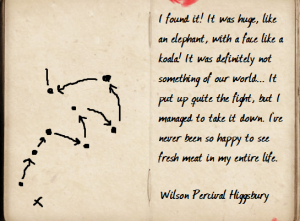 I found it! It was huge, like
an elephant, with a face like a
koala! It was definitely not
something of our world... It
put up quite the fight, but I
managed to take it down. I've
never been so happy to see
fresh meat in my entire life.
Wilson Percival Higgsbury